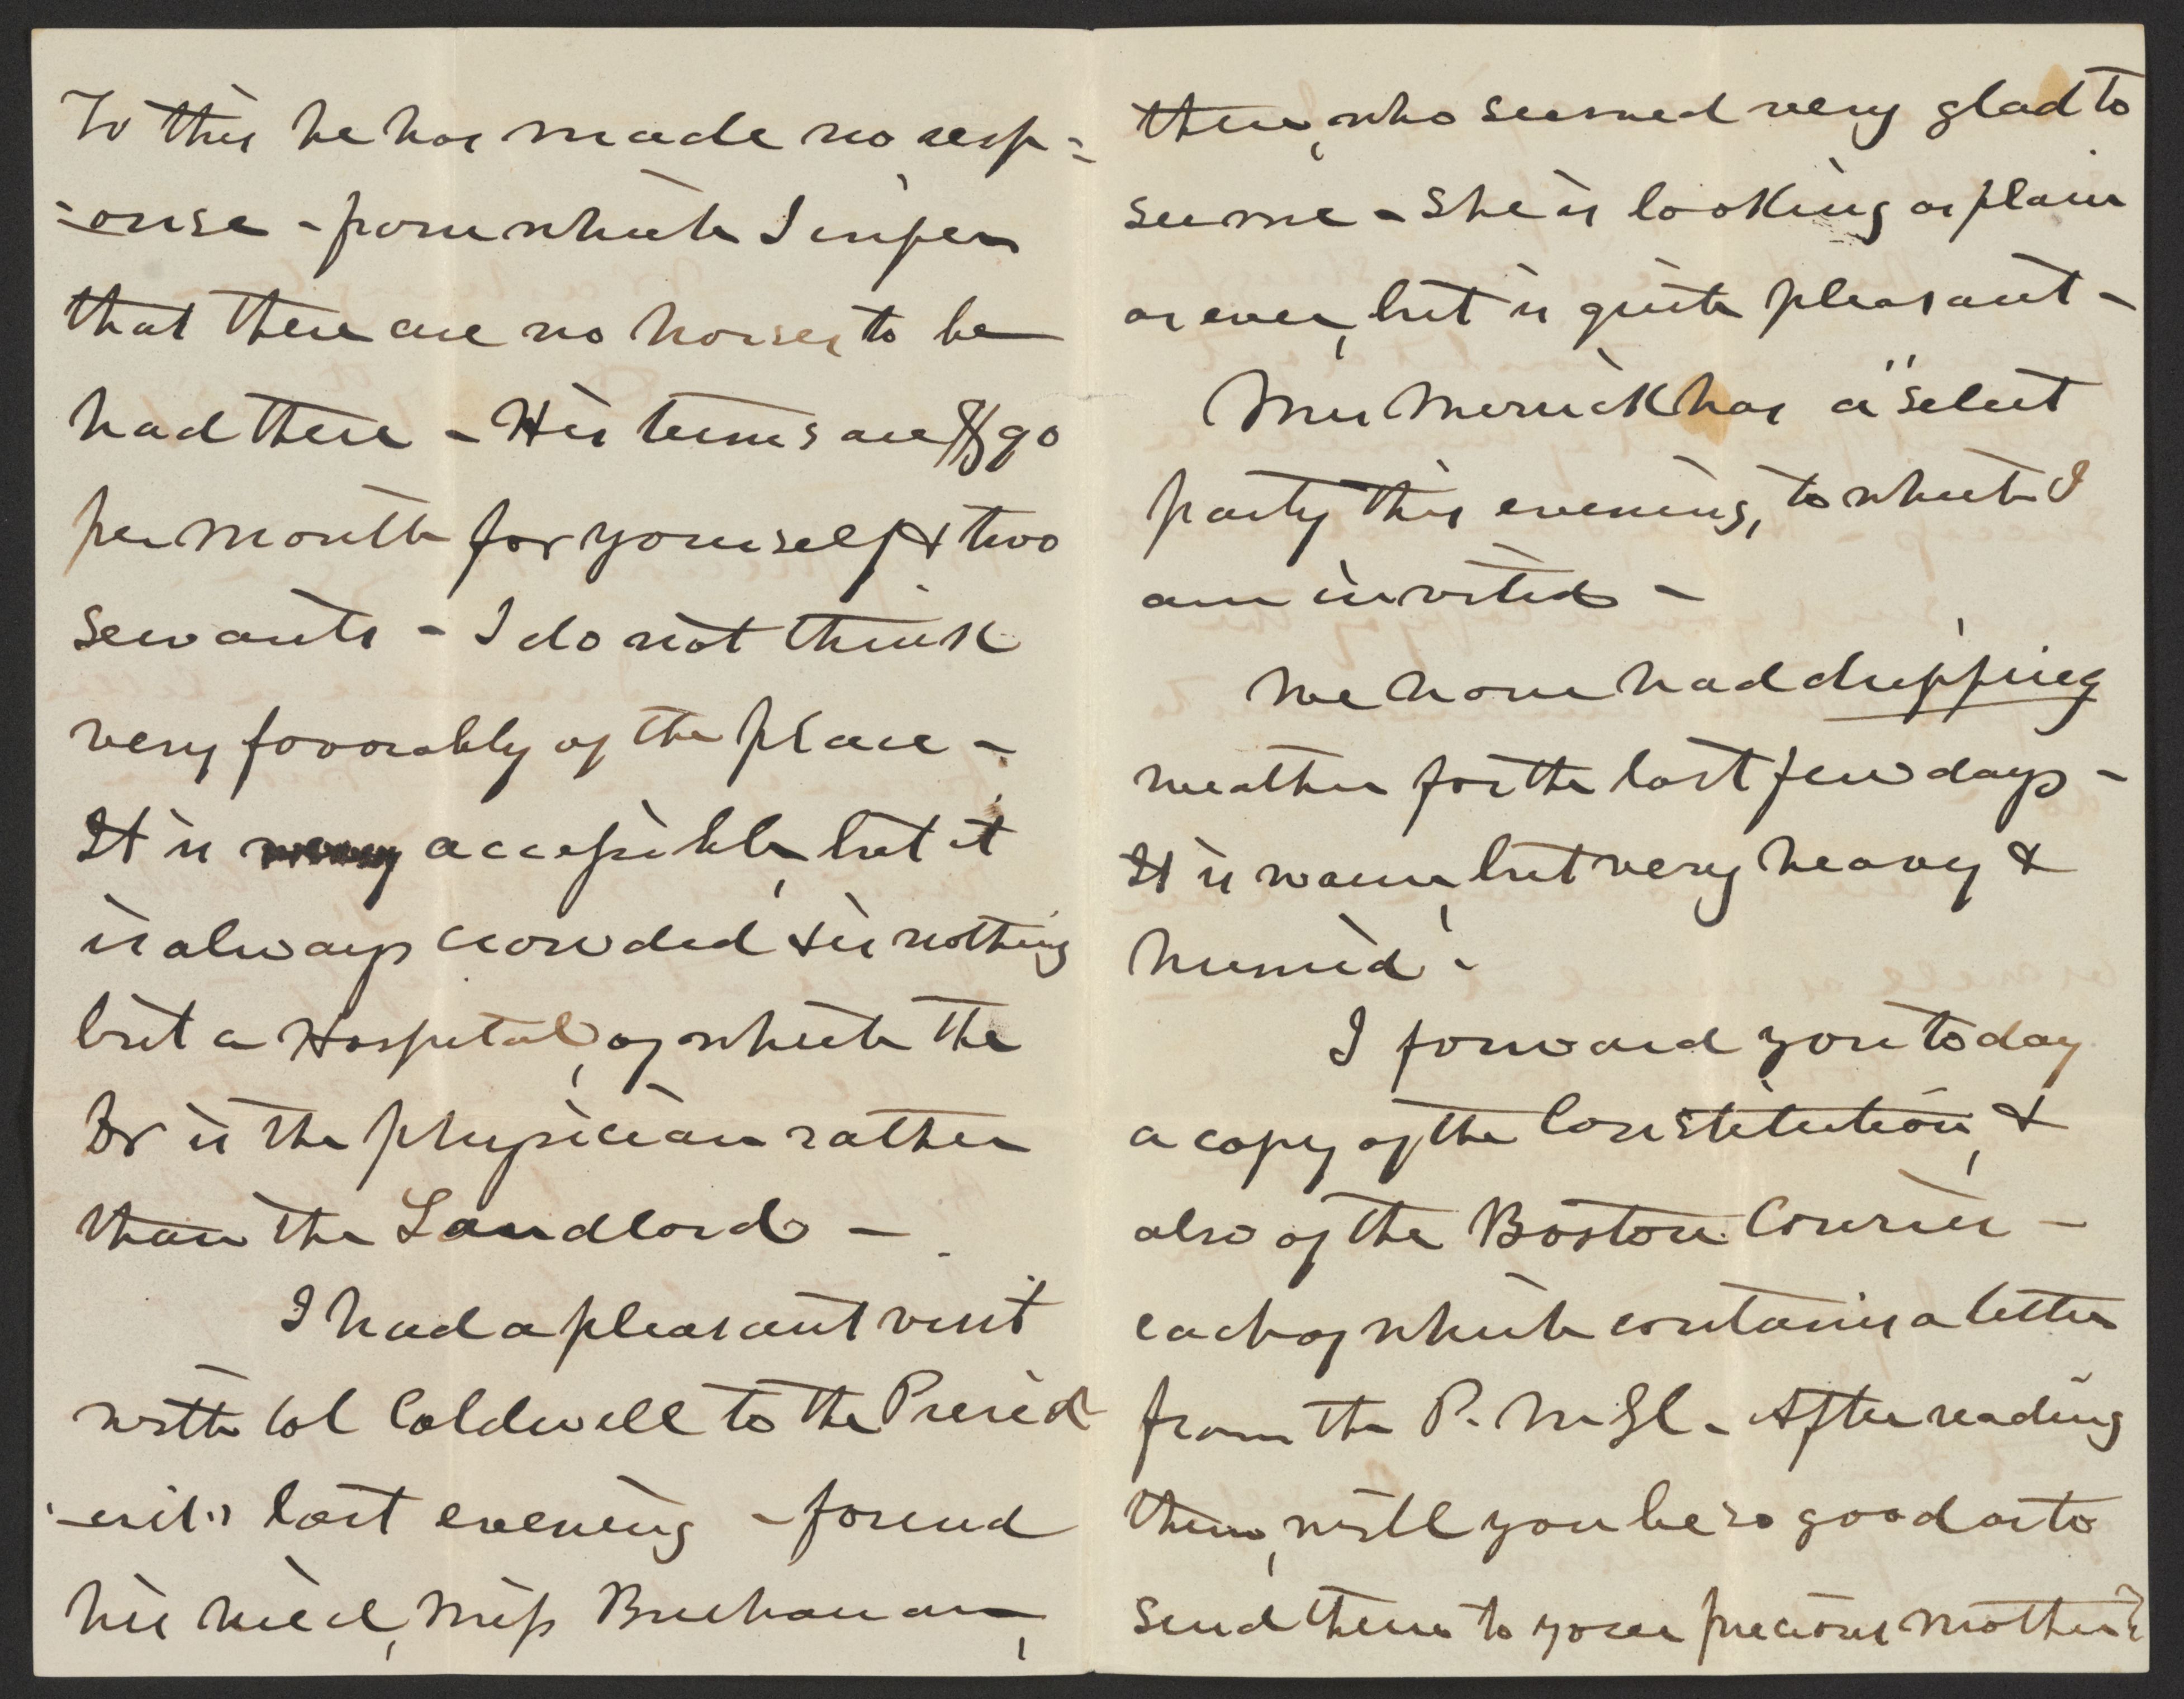 To this he has made no resp=
=onse - from which I infer
that there are no horses to be
had there - His terms are $90
per month for yourself & two
servants - I do not think
very favorably of the place -
It is very accessible, but it
is always crowded & is nothing
but a Hospital, of which the
Dr is the physician rather
than the Landlord -
I had a pleasant visit
with Col Caldwell to the Presid
-ent's last evening - found
his niece, Miss Buchanan,
there, who seemed very glad to
see me - She is looking as plain
as ever, but is quite pleasant -
Mrs Merrick has a "select
party this evening, to which I
am invited -
We have had dripping
weather for the last few days -
It is warm, but very heavy &
humid -
I forward you today
a copy of the Constitution, &
also of the Boston Courier -
each of which contains a letter
from the P. M Gl - After reading
them, will you be so good as to
send them to your precious mother?